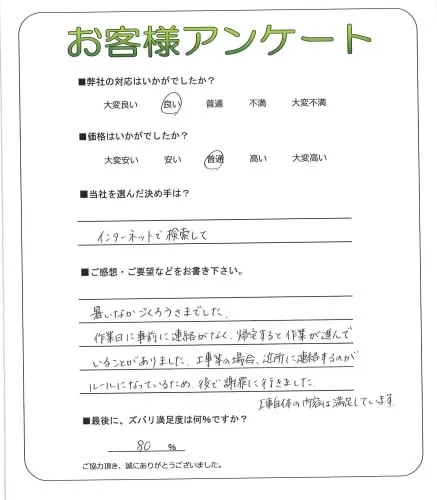 お客様アンケート
■弊社の対応はいかがでしたか?
大変良い 良い 普通 不満 大変不満
■価格はいかがでしたか?
大変安い 安い 普通 高い 大変高い
■当社を選んだ決め手は?
インターネットで検索して
■ご感想・ご要望などをお書き下さい。
暑いなかごくろうさまでした。
作業日に事前に連絡がなく、帰宅すると作業が進んで
いることがありました。工事等の場合、近所に連絡するのが
ルールになっているため、後で謝罪に行きました。
工事自体の内容は満足しています。
■最後に、ズバリ満足度は何%ですか?
80 %
ご協力頂き、誠にありがとうございました。